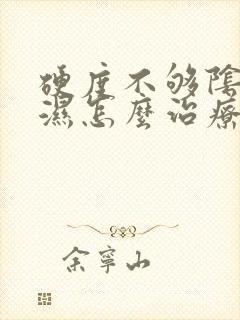 硬度不够陰
濕怎麼治療
余寧山